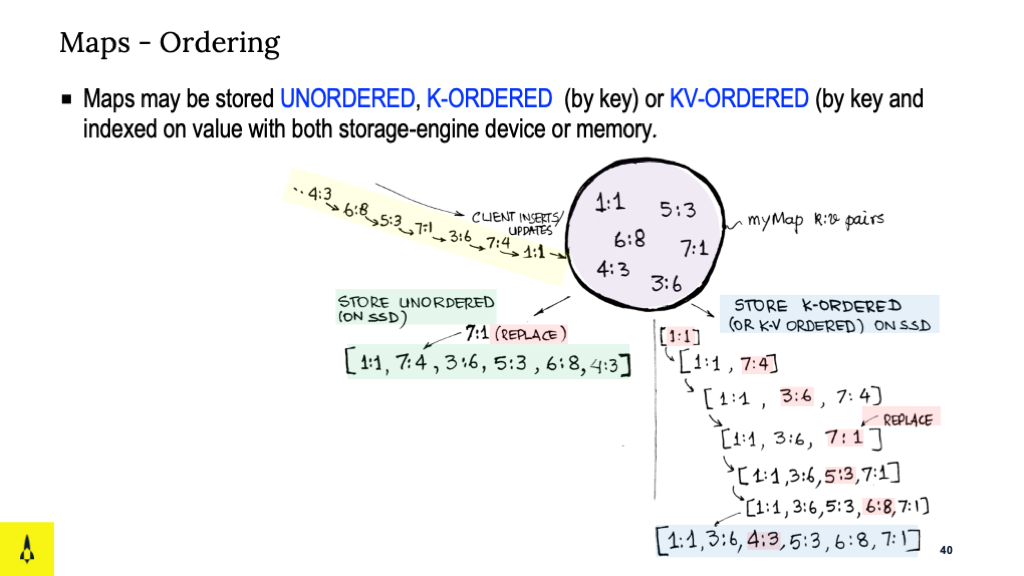 Maps - Ordering
▪ Maps may be stored UNORDERED, K-ORDERED (by key) or KV-ORDERED (by key and
indexed on value with both storage-engine device or memory.
·· 4:3 → 6:8 → 5:3 → 7:1 → 3:6 → 7:4 → 1:1 →
CLIENT INSERTS/
UPDATES
1:1 5:3
6:8 7:1
4:3 3:6
myMap k:v pairs
STORE UNORDERED
(ON SSD)
7:1 (REPLACE)
[1:1, 7:4, 3:6, 5:3, 6:8, 4:3]
STORE K-ORDERED
(OR K-V ORDERED) ON SSD
[1:1]
[1:1, 7:4]
[1:1, 3:6, 7:4]
REPLACE
[1:1, 3:6, 7:1]
[1:1, 3:6, 5:3, 7:1]
[1:1, 3:6, 5:3, 6:8, 7:1]
[1:1, 3:6, 4:3, 5:3, 6:8, 7:1]
40